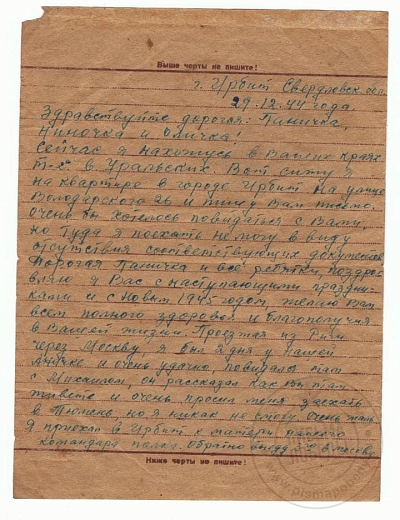 Выше черты не пишите!
г. Ирбит Свердловск. обл.
29.12.44 года.
Здравствуйте дорогая: Паничка,
Ниночка и Оличка!
Сейчас я нахожусь в Ваших краях
т-е в Уральских. Вот сижу я
на квартире в городе Ирбит на улице
Володарского 26 и пишу Вам письмо.
Очень бы хотелось повидаться с Вами,
но туда я поехать не могу в виду
отсутствия соответствующих документов.
Дорогая Паничка и все ребятки, поздрав
вляю я Вас с наступающими праздни-
ками и с Новым 1945 годом желаю Вам
всем полного здоровья и благополучия
в Вашей жизни. Проезжая из Риги
через Москву, я был 2 дня у нашей
и очень удачно, повидались там
с Михаилом, он рассказал как вы там
живете и очень просил меня заехать
в Тюмень, но я никак не смогу. Очень жаль.
Я приехал в Ирбит к матери нашего
командира полка. Обратно выеду в Москву
Ниже черты не пишите!